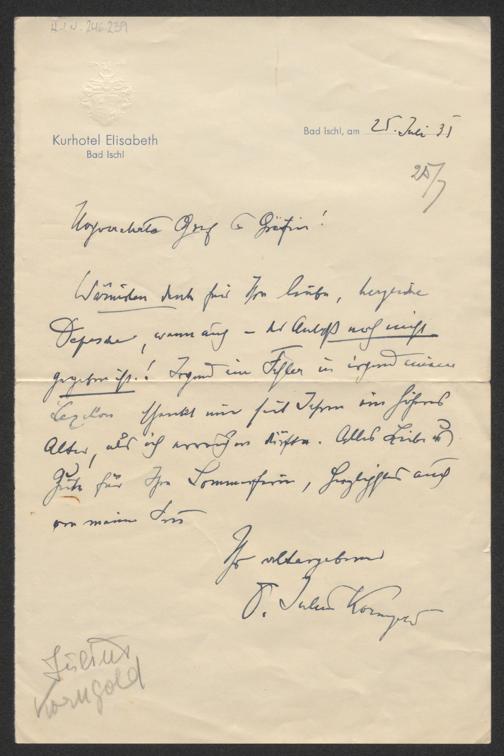 H.I.N. 246.239
Kurhotel Elisabeth
Bad Ischl
Bad Ischl, am 25. Juli 35
25/7
Hochverehrter Graf u Gräfin!
Wärmsten Dank für Ihre liebe, herzliche
Depesche, wenn auch – der Anlaß noch nicht
gegeben ist! Irgend ein Fehler in irgend einem
Lexikon schenkt mir seit Jahren ein höheres
Alter, als ich erreichen dürfte. Alles Liebe u
Gute für Ihre Sommerferien, herzlichst auch
von meiner
Ihr altergebener
D. Julius Korngold
Julius
Korngold